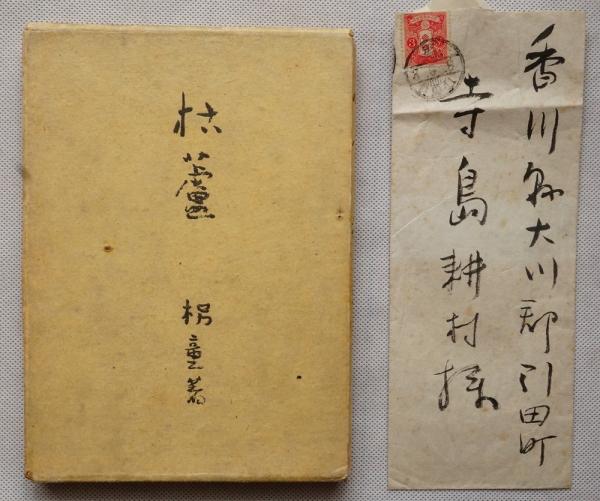 枯蘆
枴童著
香川縣大川郡引田町
寺島耕村様
3